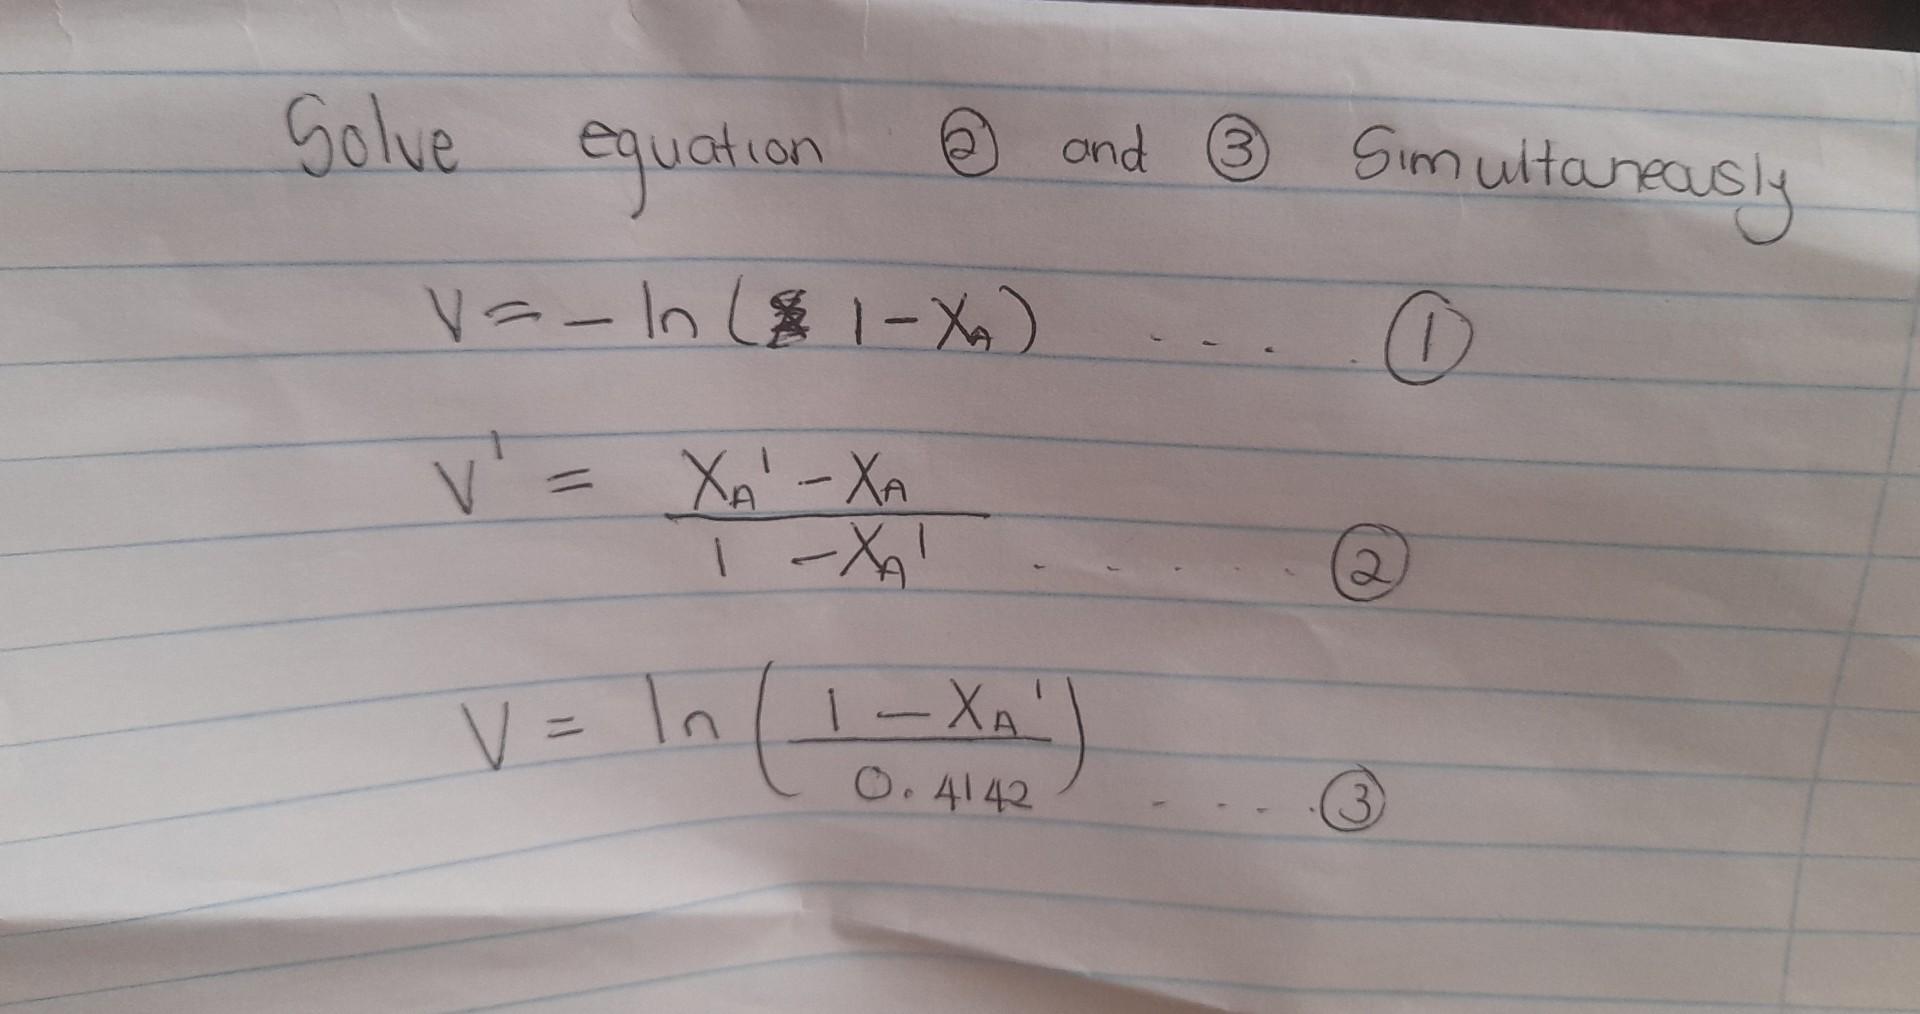 Solve equation ② and ③ Simultaneously
V = - ln ( 1 - X_A ) .... ①
V' = \frac{X_A' - X_A}{1 - X_A'} ...... ②
V = ln ( \frac{1 - X_A'}{0.4142} ) .... ③